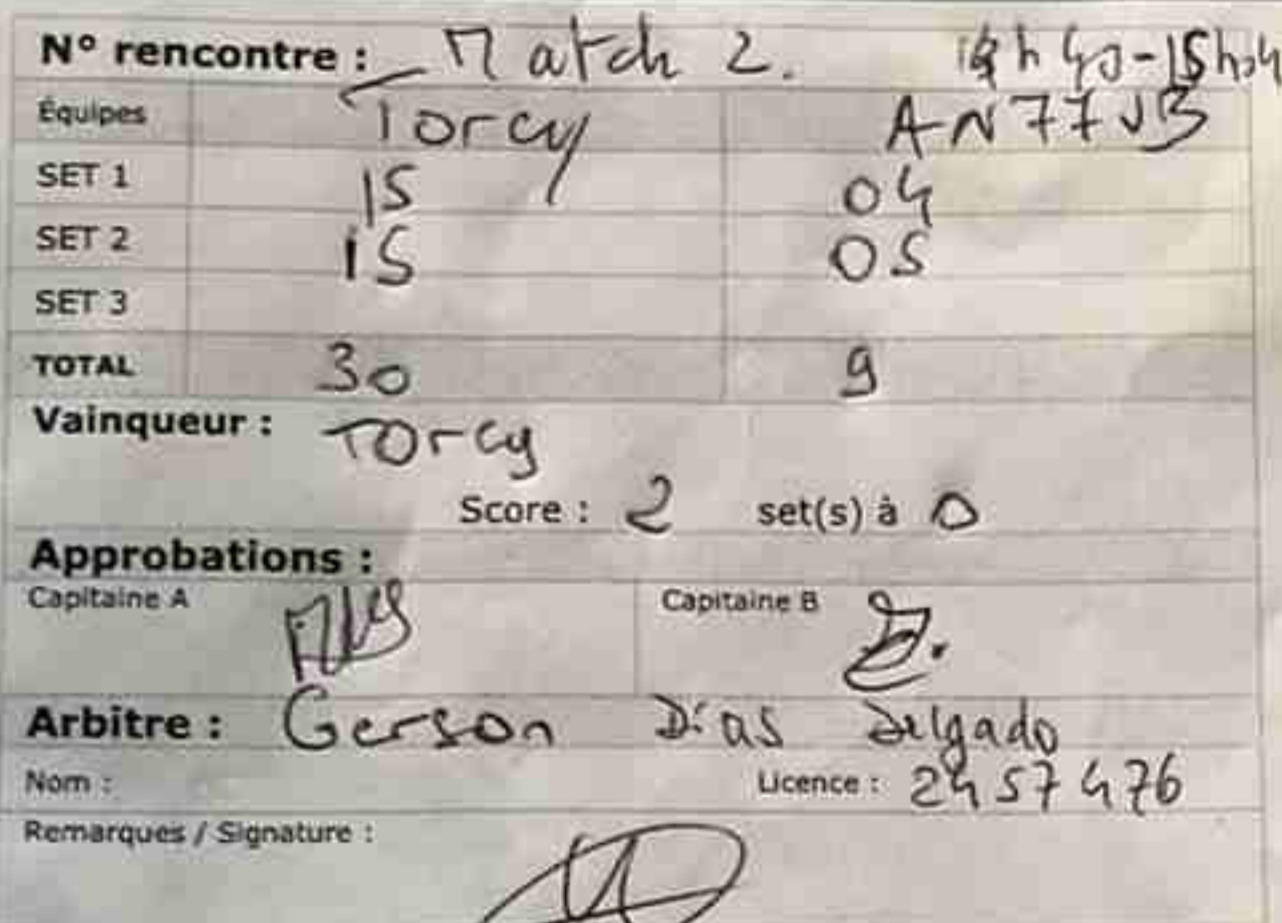 N° rencontre : Match 2. 14h40-15h04
Équipes Torcy AN77VB
SET 1 15 04
SET 2 15 05
SET 3
TOTAL 30 9
Vainqueur : Torcy
Score : 2 set(s) à 0
Approbations :
Capitaine A Capitaine B
Arbitre : Gerson Dias Delgado
Nom : Licence : 2457476
Remarques / Signature :